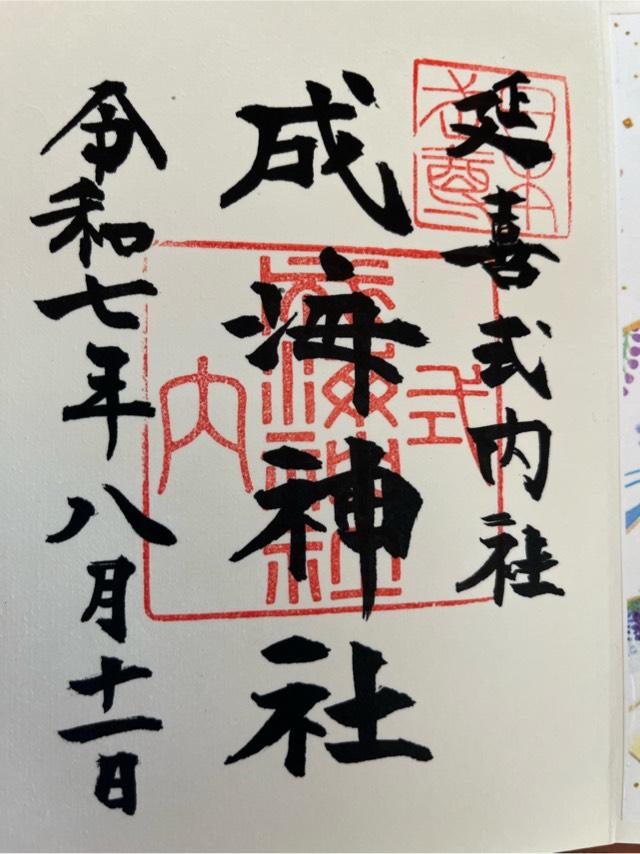 延喜式内社
成海神社
令和七年八月十一日
日本
武尊
式
成海神社
内